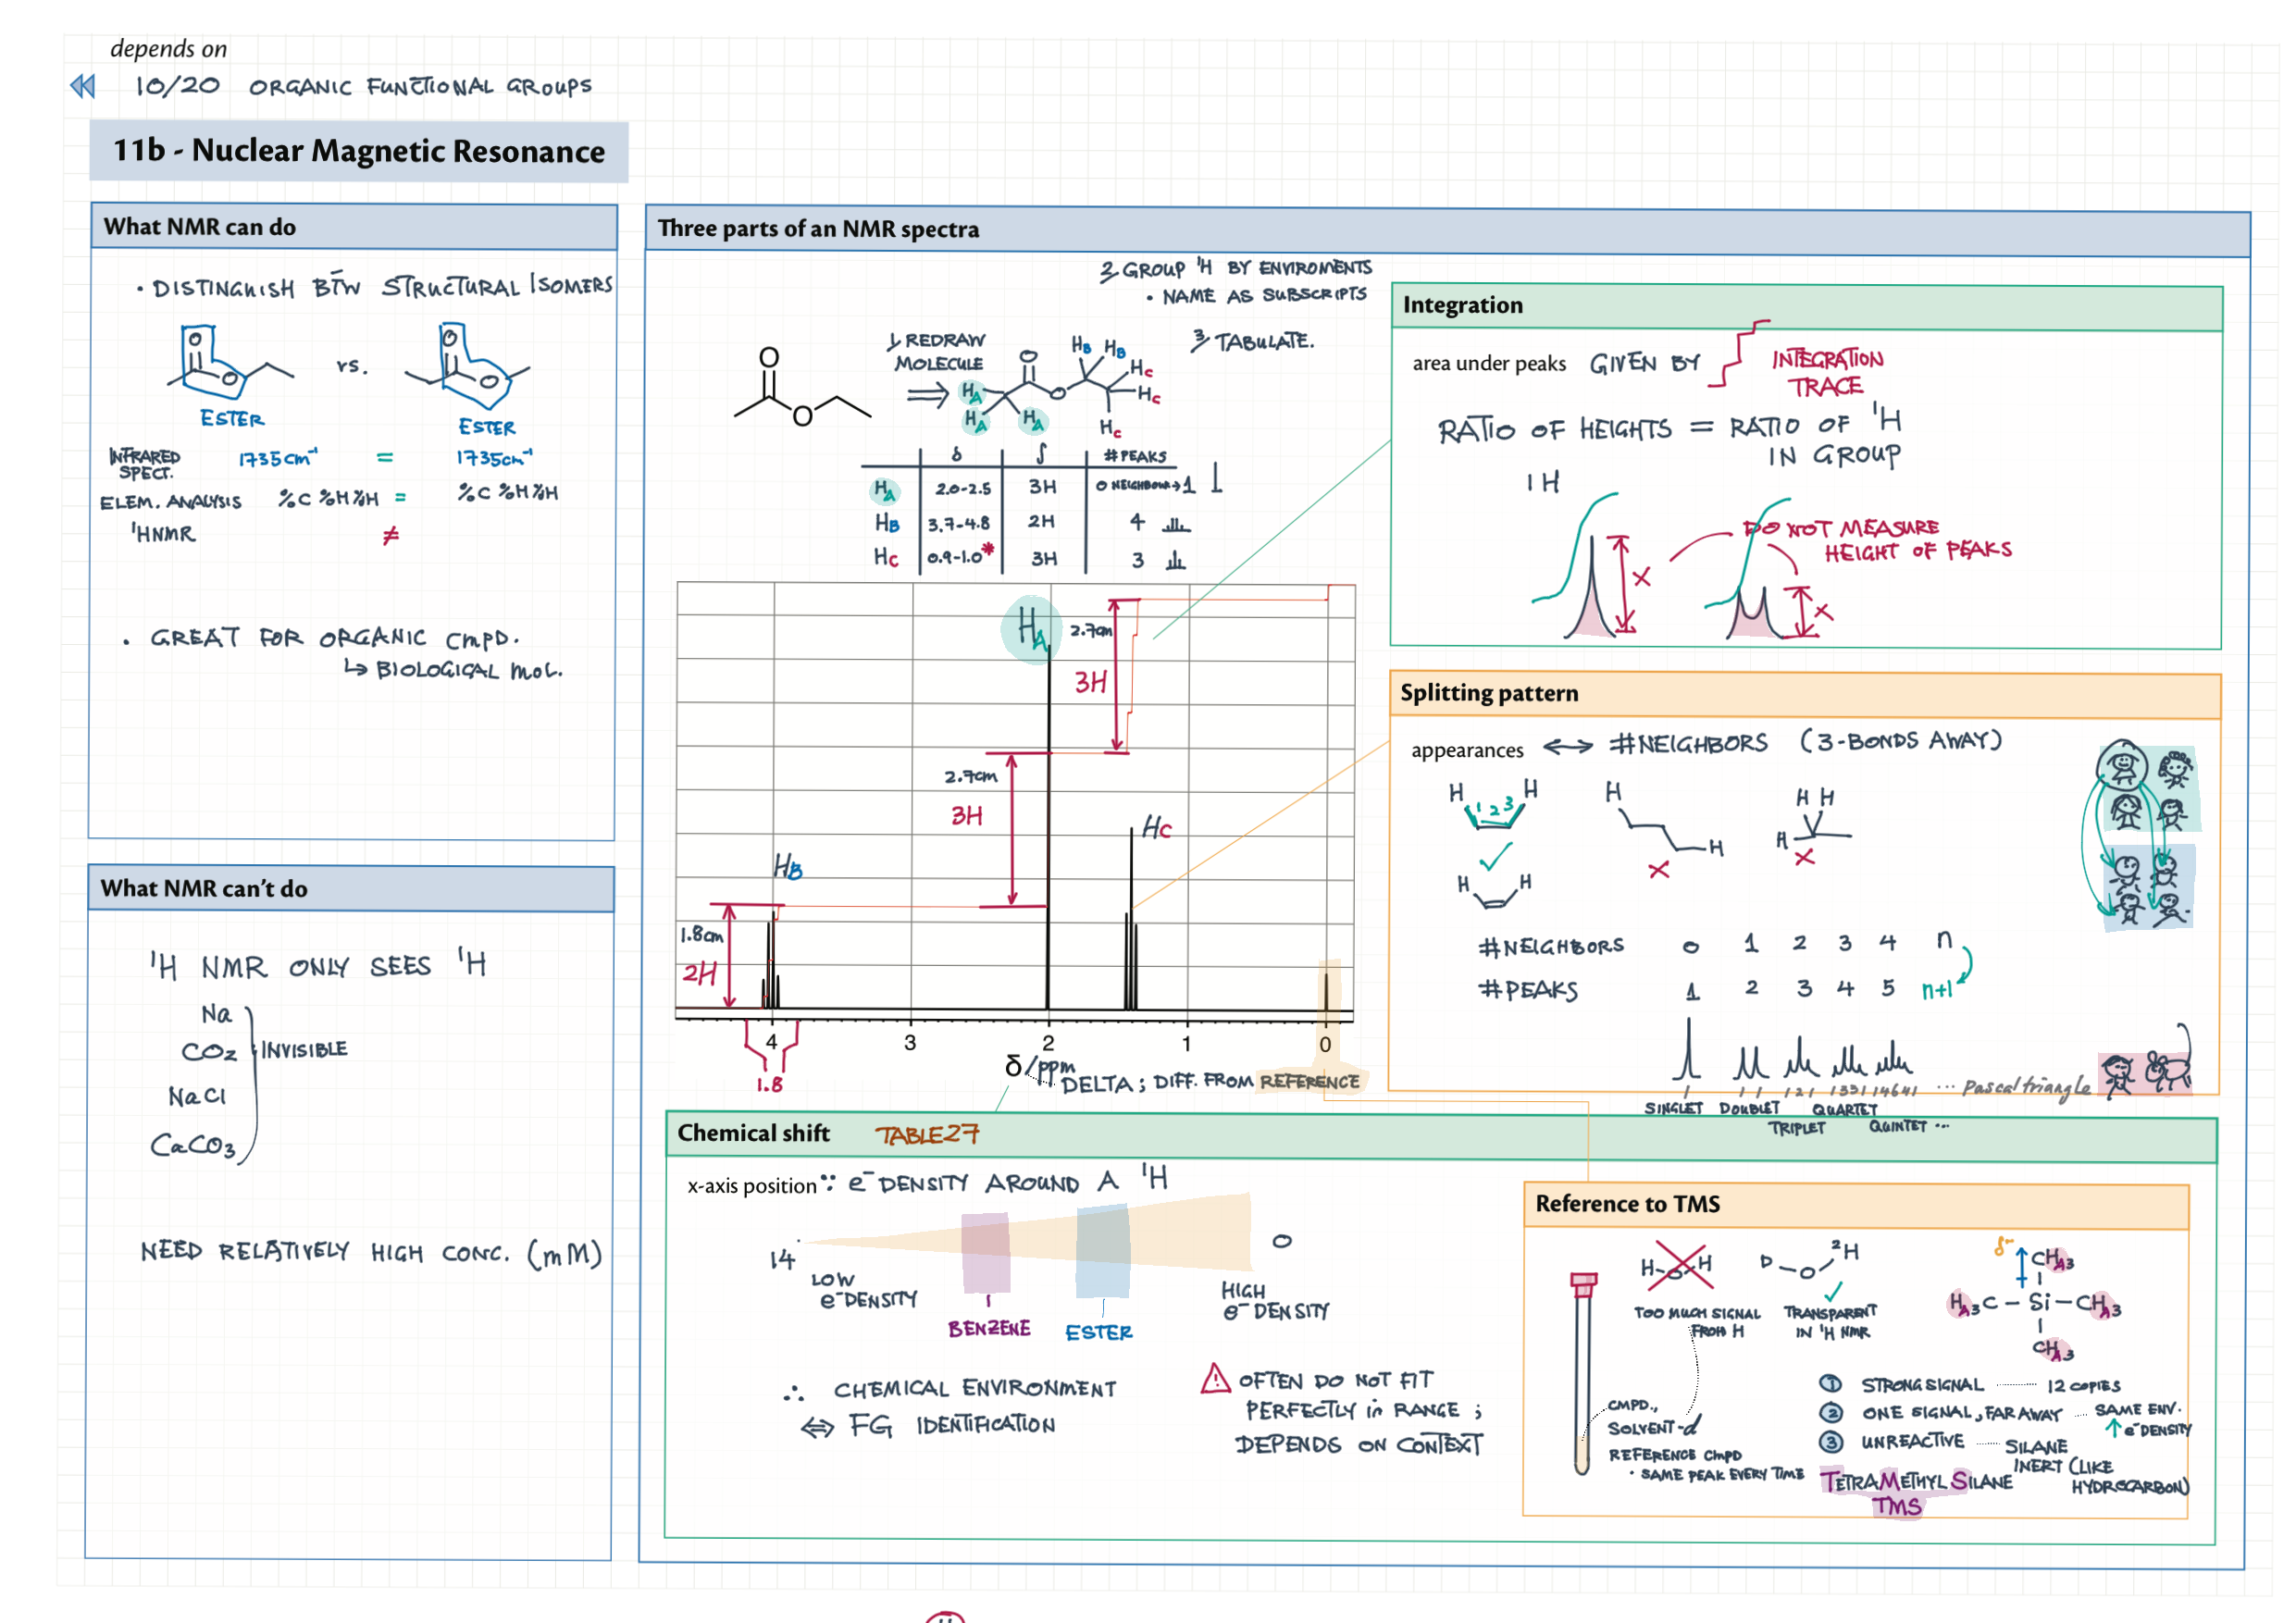 depends on
10/20 ORGANIC FUNCTIONAL GROUPS
11b - Nuclear Magnetic Resonance
What NMR can do
• DISTINGUISH BTW STRUCTURAL ISOMERS
O
O
vs.
O
O
ESTER
ESTER
INFRARED SPECT. 1735cm⁻¹ = 1735cm⁻¹
ELEM. ANALYSIS %C %H %H = %C %H %H
¹HNMR ≠
• GREAT FOR ORGANIC CMPD.
↳ BIOLOGICAL MOL.
What NMR can't do
¹H NMR ONLY SEES ¹H
Na
CO₂
NaCl
CaCO₃
INVISIBLE
NEED RELATIVELY HIGH CONC. (mM)
Three parts of an NMR spectra
1/ REDRAW
MOLECULE
2/ GROUP ¹H BY ENVIROMENTS
• NAME AS SUBSCRIPTS
3/ TABULATE.
O
O
⇒
H_A
H_A
H_A
O
O
H_B H_B
H_C
H_C
H_C
δ ∫ # PEAKS
H_A 2.0-2.5 3H 0 NEIGHBOUR→1
H_B 3.7-4.8 2H 4
H_C 0.9-1.0* 3H 3
H_A
2.7cm
3H
2.7cm
3H
H_C
H_B
1.8cm
2H
4 3 2 1 0
1.8
δ/ppm
DELTA; DIFF. FROM REFERENCE
Integration
area under peaks GIVEN BY INTEGRATION
TRACE
RATIO OF HEIGHTS = RATIO OF ¹H
IN GROUP
1H
DO NOT MEASURE
HEIGHT OF PEAKS
X
X
Splitting pattern
appearances ⟷ #NEIGHBORS (3-BONDS AWAY)
H 1 2 3 H
✓
H H
H
H
X
H H
H
X
#NEIGHBORS 0 1 2 3 4 n
#PEAKS 1 2 3 4 5 n+1
1 1 1 1 2 1 1331 14641 ... Pascal triangle
SINGLET DOUBLET QUARTET
TRIPLET QUINTET ...
Chemical shift TABLE 27
x-axis position ∵ e⁻ DENSITY AROUND A ¹H
14
0
LOW
e⁻DENSITY
BENZENE
ESTER
HIGH
e⁻ DENSITY
∴ CHEMICAL ENVIRONMENT
⇔ FG IDENTIFICATION
! OFTEN DO NOT FIT
PERFECTLY in RANGE;
DEPENDS ON CONTEXT
Reference to TMS
H-O-H
D-O-²H
✓
TOO MUCH SIGNAL
FROM H
TRANSPARENT
IN ¹H NMR
CMPD.,
SOLVENT-d
REFERENCE CMPD
• SAME PEAK EVERY TIME
δ⁻
CH_A3
H_A3C - Si - CH_A3
CH_A3
① STRONG SIGNAL ...... 12 COPIES
② ONE SIGNAL, FAR AWAY ... SAME ENV.
↑ e⁻DENSITY
③ UNREACTIVE ...... SILANE
INERT (LIKE
HYDROCARBON)
TETRAMETHYL SILANE
TMS